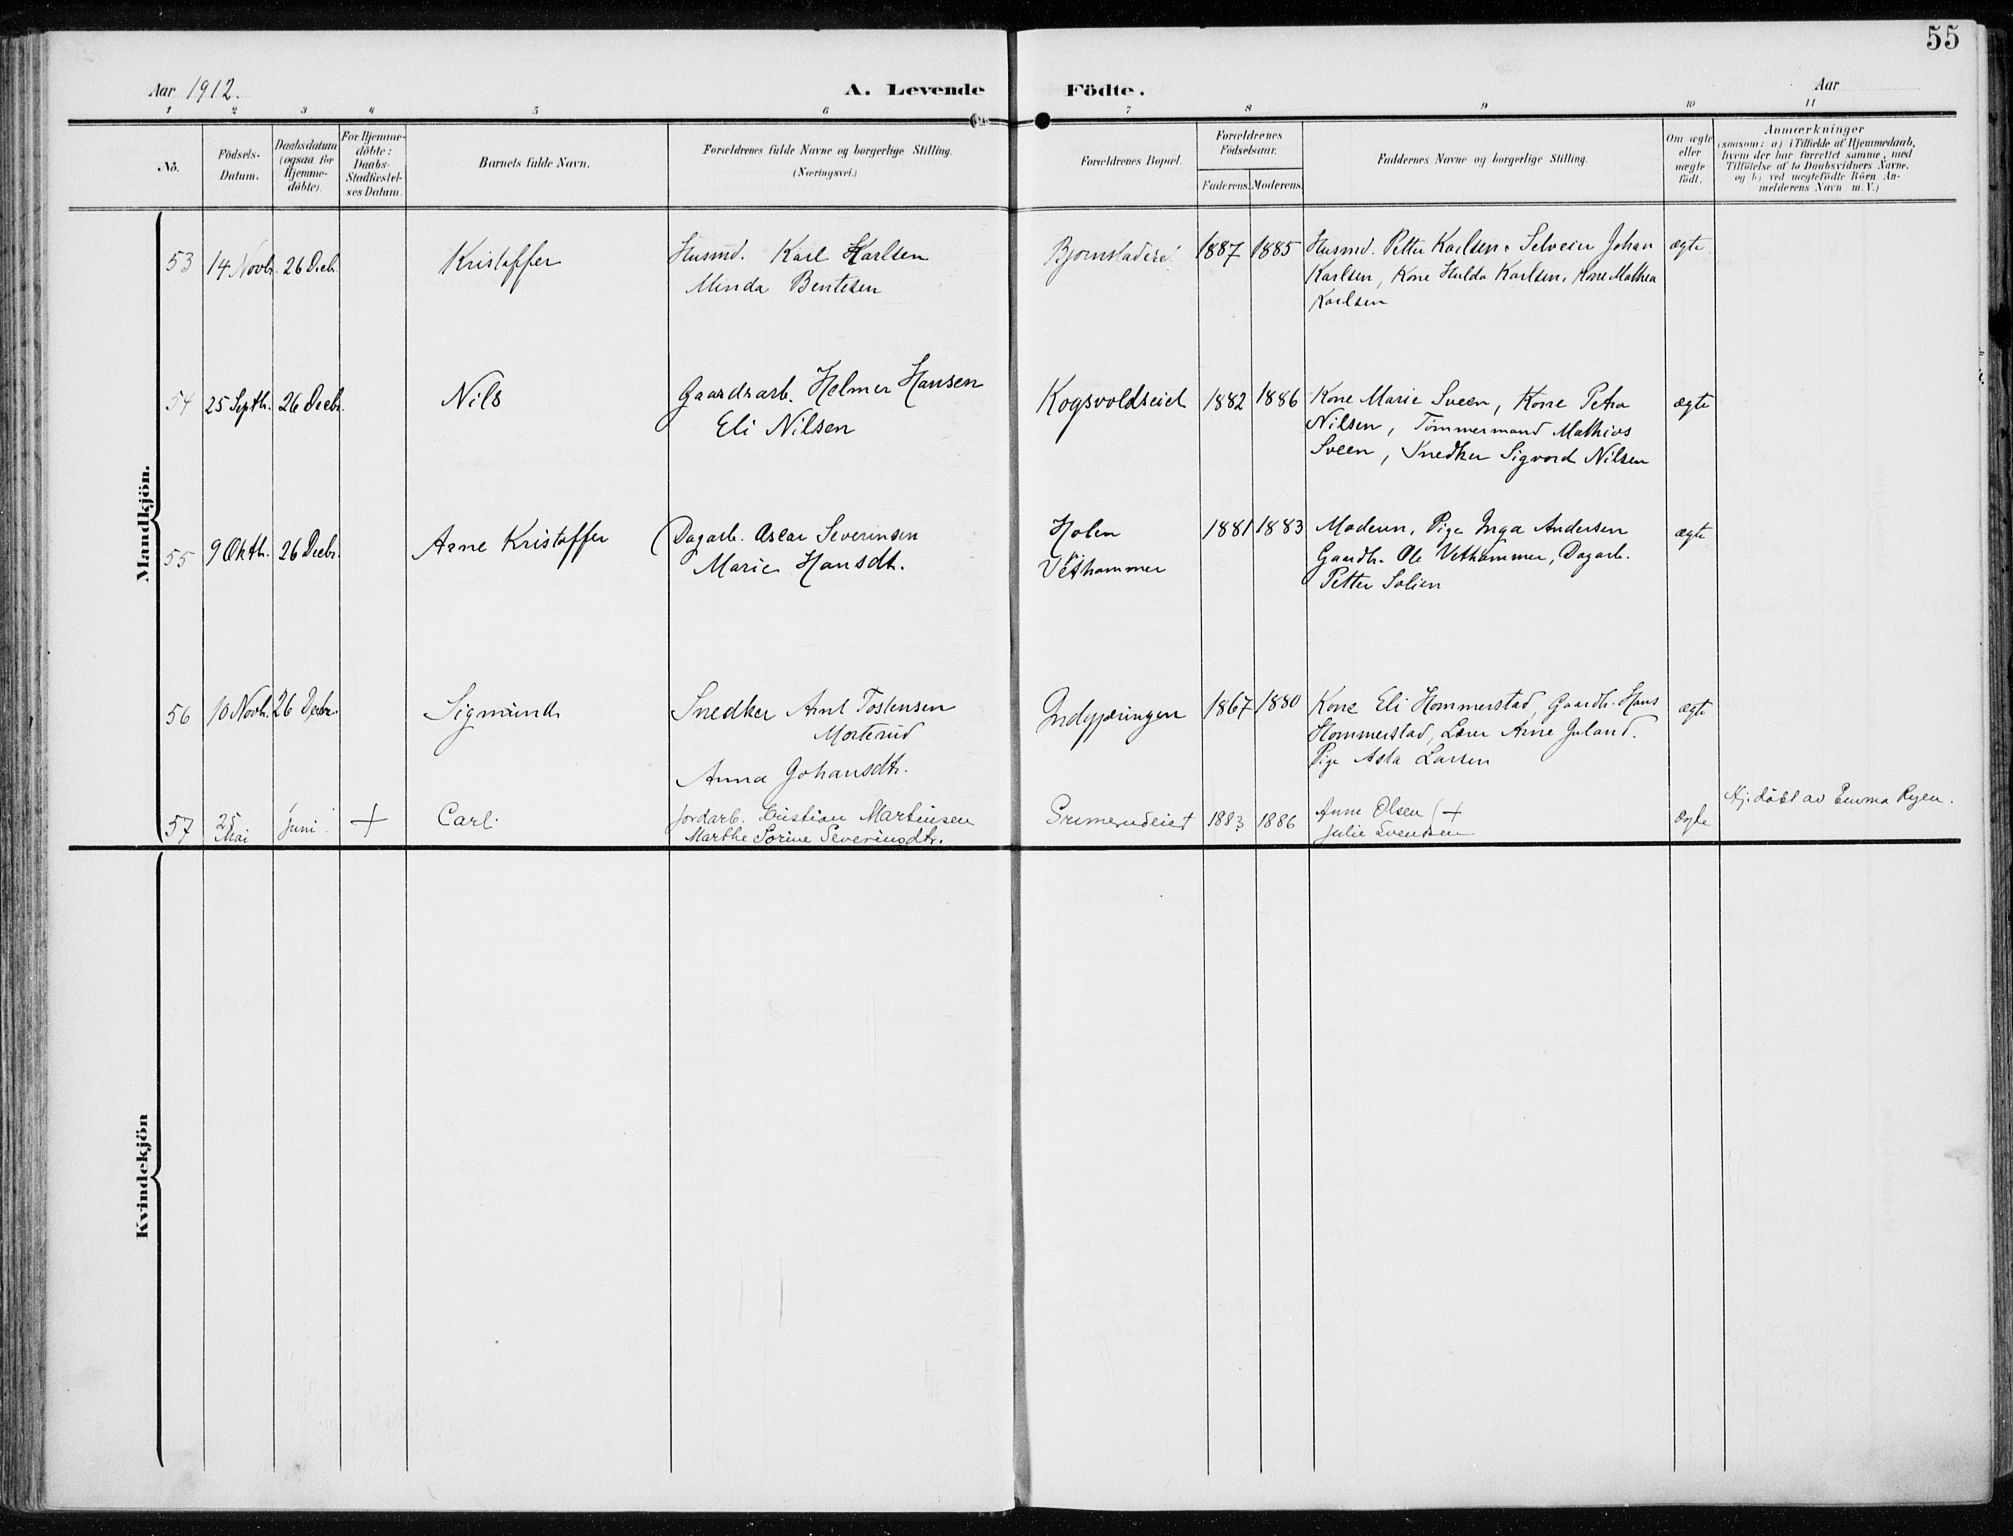 55
Aar 1912.
A. Levende Födte.
Aar
1 2 3 4 5 6 7 8 9 10 11
No.
Födsels-Datum.
Daabsdatum (ogsaa for Hjemme-döbte).
For Hjemme-döbte: Daabs-Stadfæstel-ses Datum.
Barnets fulde Navn.
Forældrenes fulde Navne og borgerlige Stilling.
(Næringsvei.)
Forældrenes Bopæl.
Forældrenes Födselsaar.
Faderens. Moderens.
Faddernes Navne og borgerlige Stilling.
Om ægte eller uægte födt.
Anmærkninger
(saasom: a) i Tilfælde af Hjemmedaab,
hvem der har forrettet samme, med
Tilföielse af to Daabsvidners Navne.
og b) ved uægtefödte Börn An-
melderens Navn m. V.)
Mandkjön.
53 14 Novb. 26 Decb. Kristoffer Husmd. Karl Karlsen 1887 1885 Husmd. Petter Karlsen, Selveier Johan ægte
Minda Bentesen Karlsen, Kone Hulda Karlsen, Kone Mathea
Karlsen
54 25 Septb. 26 Decbr. Nils Gaardsarb. Helmer Hansen Kogsvoldseiet 1882 1886 Kone Marie Sveen, Kone Petra ægte
Eli Nilsen Nilsen, Tømmermand Mathias
Sveen, Snedker Sigvard Nilsen
55 9 Oktb. 26 Decbr. Arne Kristoffer Dagarb. Oscar Severinsen Holen 1881 1883 Moderen, Pige Inga Andersen ægte
Marie Hansdt. Vethammer Gaardb. Ole Vethammer, Dagarb.
Petter Solien
56 10 Novb. 26 Decbr. Sigmund Snedker Arnt Tostensen 1867 1880 Kone Eli Hommerstad, Gaardb. Hans ægte
Morterud Hommerstad, Lærer Arne Juland.
Anna Johansdt. Pige Asta Larsen
57 25 Mai Juni + Carl. Jordarb. Kristian Martinsen Grimerudeiet 1883 1886 Anne Olsen + ægte Hj. døbt av Emma Ryen.
Marthe Sorine Severinsdtr. Julie Svendsen
Kvindekjön